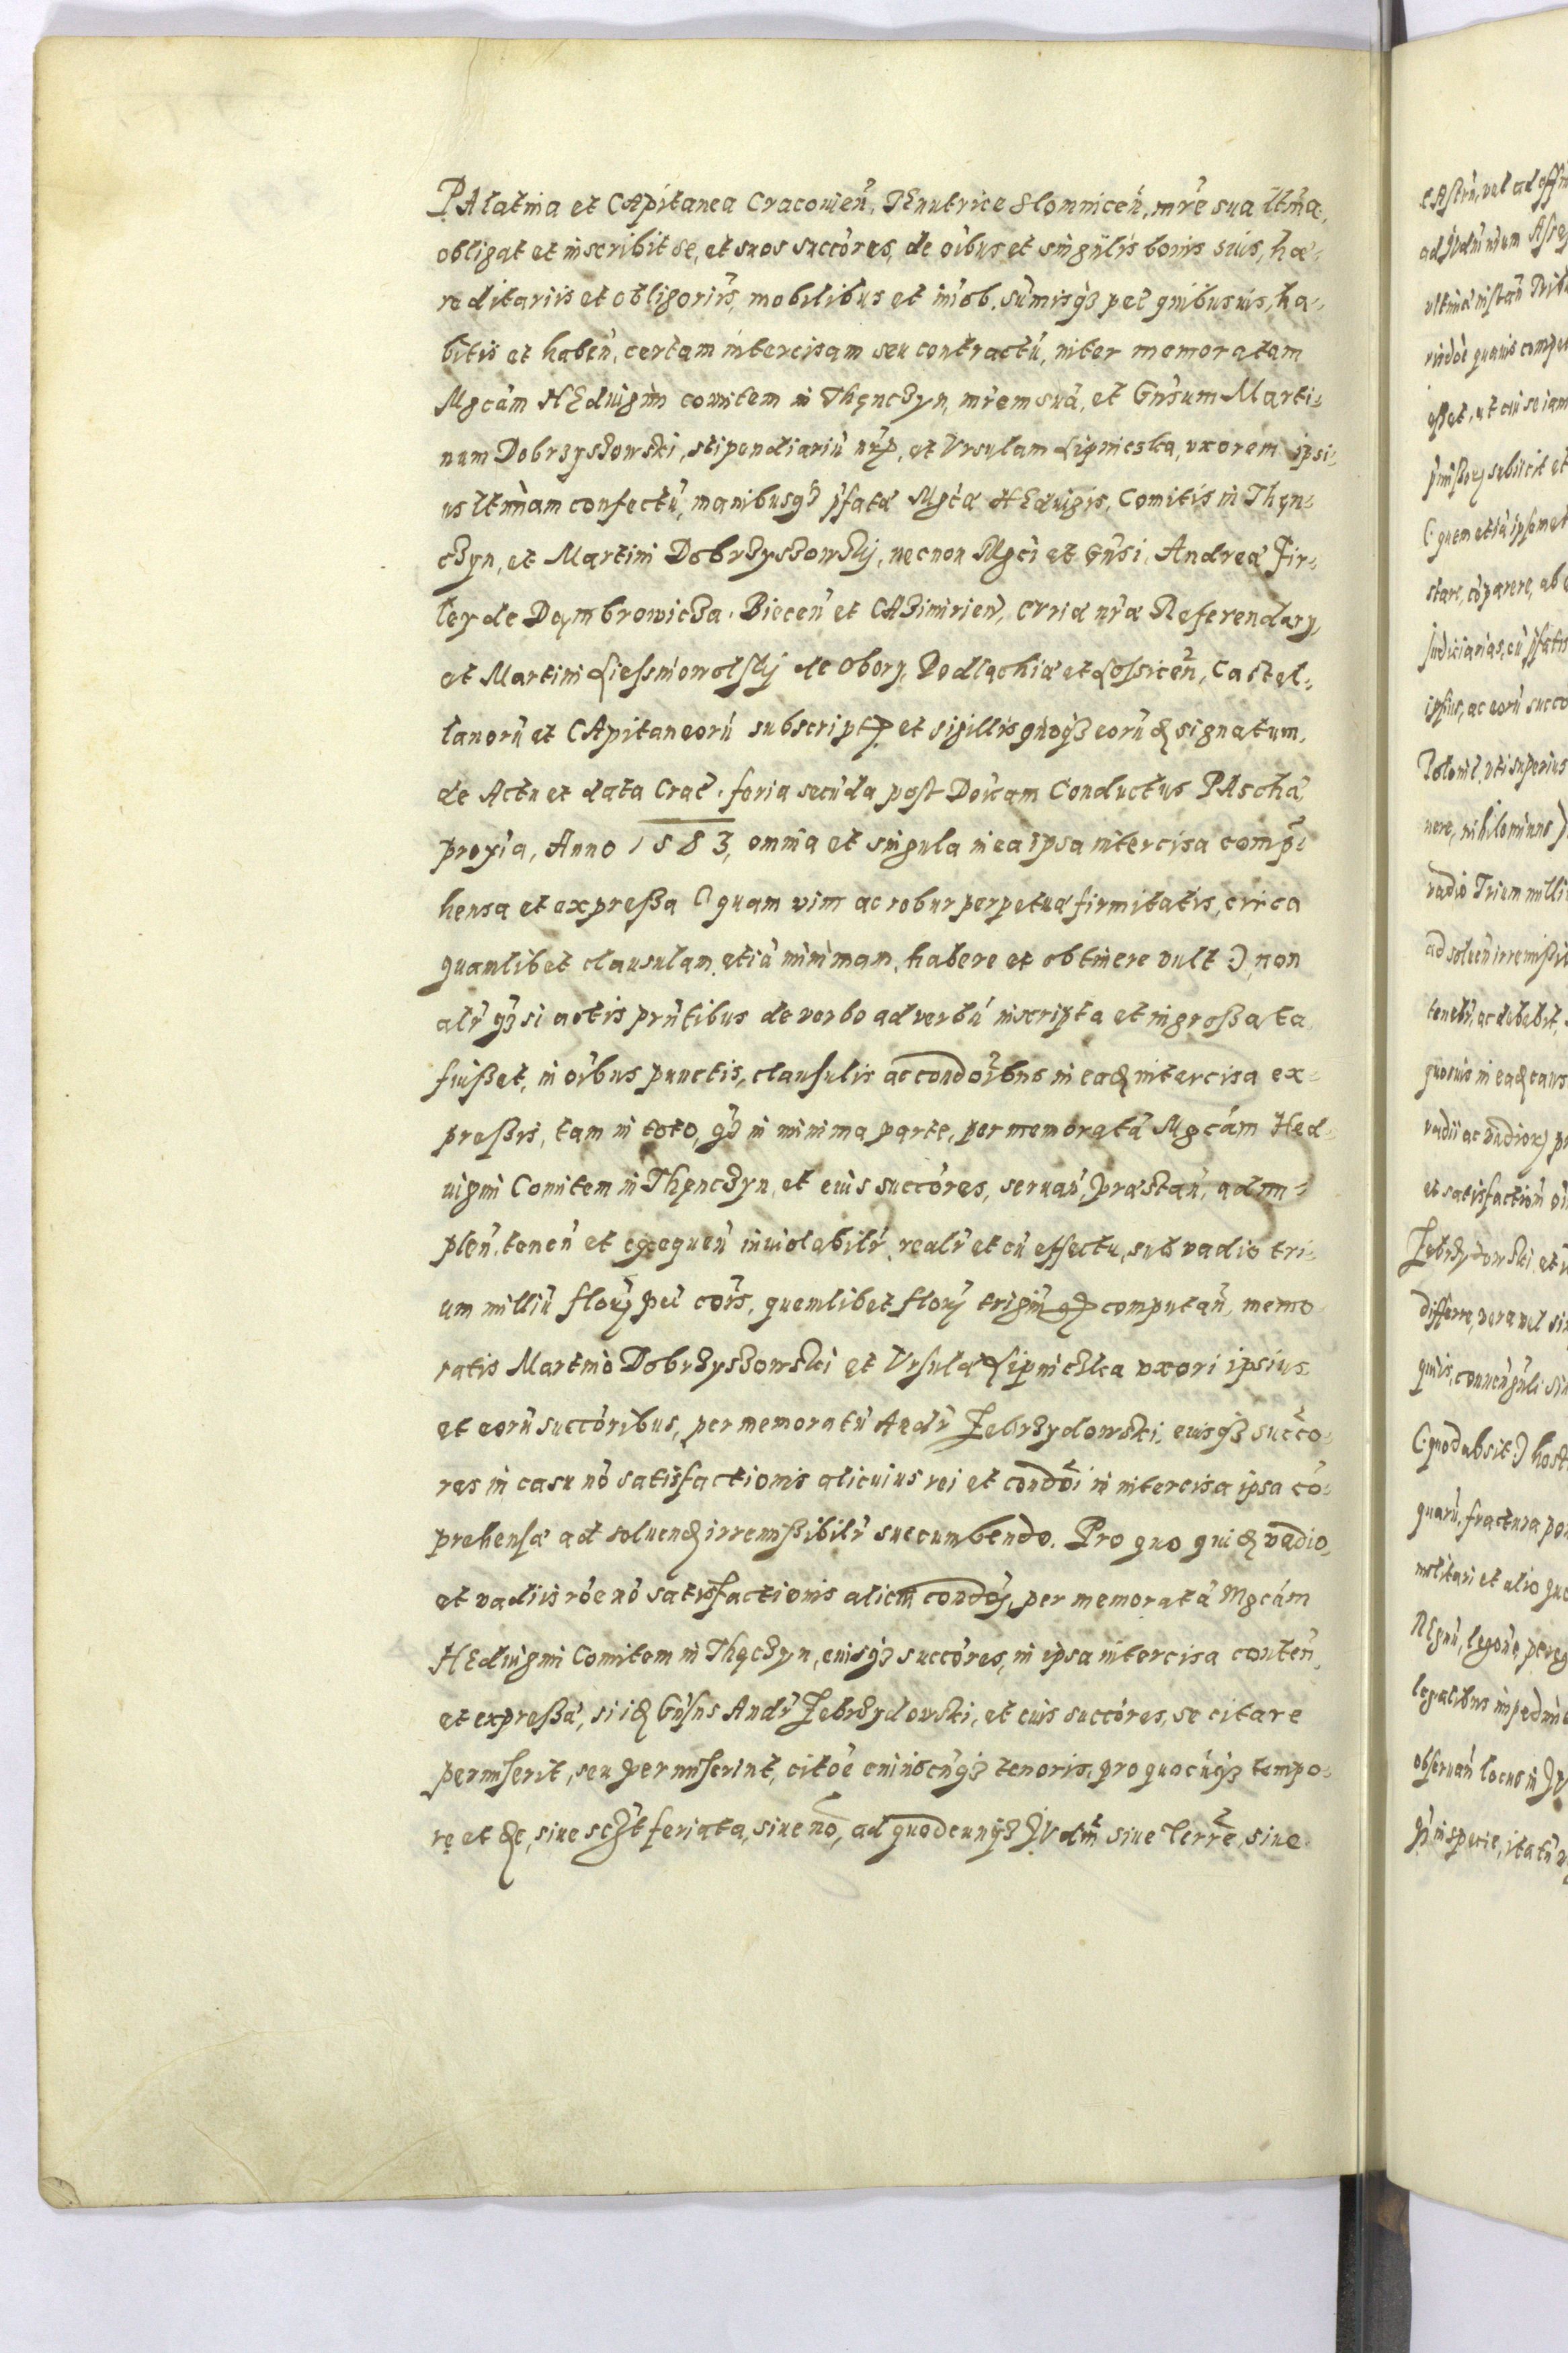 PAlatina et CApitanea Cracouień, TEnutrice Slomniceń, mr̃e sua ltm̃a,
obligat et inscribit se, et suos succóres, de oĩbus et singulis bonis suis, hæ-
reditariis et obligoriis, mobilibus et im̃ob. sum̃isqꝫ pec̃ quibusuis, ha-
bitis et habeń, certam intercisam seu contractũ, inter memoratam
Mgcám HEduigim comitem in Thęnczyn, mr̃em suã, et Gn̄sum Marti-
num Dobrzyszowski, stipendiariũ nr̃ꝝ, et Vrsulam Lipnicska, vxorem ipsi-
us ltm̃am confectũ, manibusqꝫ p̃fatæ Mgcæ HEduigis, Comitis in Thęn-
czyn, et Martini Dobrzyszowskij, necnon Mgci et Gn̄si Andreæ Fir-
ley de Dąmbrowicza. Bieceń et CAzimirień, CVriæ nr̃æ Referendarij,
et Martini Liessniowolskij de Obory, Podlachiæ et Lossiceń, Castel-
lanorũ et CApitaneorũ subscriptꝝ et sigillis quoqꝫ eorũdꝫ signatum,
de Actu et data Crac̃. feria secũda post Doĩcam Conductus PAschæ
proxĩa, Anno 1583, omnia et singula in ea ipsa intercisa comp̃-
hensa et expressa (: quam vim ac robur perpetuæ firmitatis, circa
quamlibet clausulam, etiã minimam, habere et obtinere vult :), non
alr̃ qꝫ si actis pn̄tibus de verbo ad verbũ inscripta et ingrossata
fuisset, in oĩbus punctis, clausulis ac condoĩbus in eadꝫ intercisa ex-
pressis, tam in toto, qꝫ in minima parte, per memoratã Mgcám Hed-
uigim Comitem in Thęnczyn, et eius succóres, seruań, præstań, adim-
pleń, teneń et exequeń inuiolabilr̃, realr̃ et cũ effectu, sub vadio tri-
um milliũ florꝝ pec̃ coĩs, quemlibet florꝝ trigin̄ gꝝ computań, memo-
ratis Martino Dobrzyszowski et Vrsulæ Lipnicska vxori ipsius
et eorũ succóribus, per memoratũ Andr̃ Zebrzydowski, eiusqꝫ succó-
res in casu nõ satisfactionis alicuius rei et condoĩ in intercisa ipsa cõ-
prehensæ ad soluendꝫ irremissibilr̃ succumbendo. Pro quo quidꝫ vadio,
et vadiis rõe nõ satisfactionis alicui condoĩs, per memoratã Mgcám
HEduigim Comitem in Thęczyn, eiusqꝫ succóres, in ipsa intercisa conteń
et expressæ, si idꝫ Gn̄sus Andr̃ Zebrzydowski, et eius succóres, se citare
permiserit, seu permiserint, citõe cuiuscũqꝫ tenoris, pro quocũqꝫ tempo-
re et &c, siue sc̃ꝫt feriata, siue nõ, ad quodcunqꝫ IVdm̃ siue Terrẽ, siue